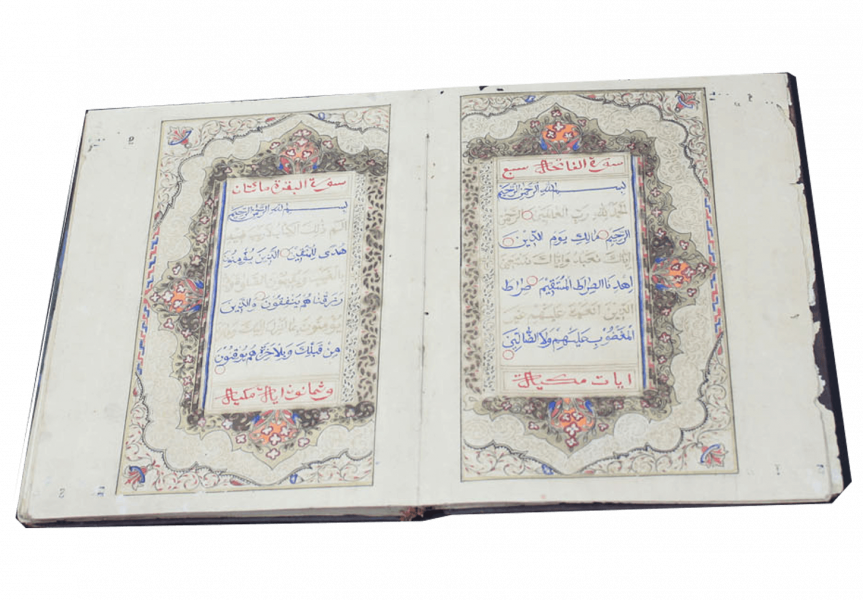 سورة الفاتحة سبع
بسم الله الرحمن الرحيم
الحمد لله رب العالمين الرحمن
الرحيم مالك يوم الدين
إياك نعبد وإياك نستعين
اهدنا الصراط المستقيم صراط
الذين أنعمت عليهم غير
المغضوب عليهم ولا الضالين
ايات مكية
سورة البقرة مائتان
بسم الله الرحمن الرحيم
الم ذلك الكتاب لا ريب فيه
هدى للمتقين الذين يؤمنون
بالغيب ويقيمون الصلوة ومما
رزقناهم ينفقون والذين
يؤمنون بما أنزل إليك وما
من قبلك وبالاخرة هم يوقنون
وثمانون اية مكية